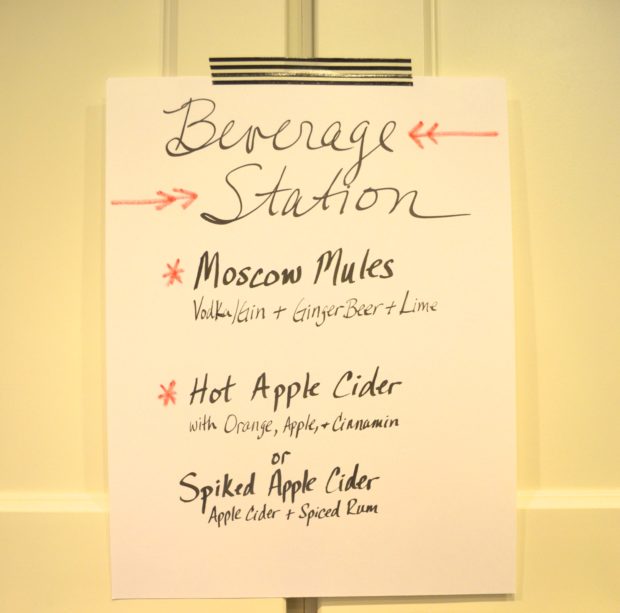 Beverage
Station
* Moscow Mules
Vodka/Gin + Ginger Beer + Lime
* Hot Apple Cider
with Orange, Apple, + Cinnamin
or
Spiked Apple Cider
Apple Cider + Spiced Rum